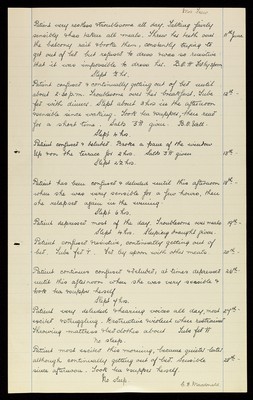 Patient very restless & troublesome all day. Talking fairly
sensibly & has taken all meals. Threw her teeth over
the balcony and broke them, constantly trying to
get out of bed but refused to dress & was so resistive
that it was impossible to dress her. B.O.
Slept 2 hrs.
Patient confused & continually getting out of bed until
about 2.30 p.m. Troublesome over her breakfast. Tube
fed with dinner. Slept about 3 hrs in the afternoon
sensible since waking. Took her supper, then read
for a short time. Salts given.
Slept 4 hrs.
Patient confused & deluded. Broke a pane of the window
up on the terrace for 2 hrs. Salts given
Slept 4½ hrs.
Patient has been confused & deluded until this afternoon
when she was very sensible for a few hours, then
she relapsed again in the evening
Slept 4 hrs.
Patient depressed most of the day. Troublesome over meals
Slept hrs. Sleeping draught given.
Patient confused & resistive, continually getting out of
bed. Tube fed. Yet by spoon with other meals
Patient continues confused & deluded, at times depressed
until this afternoon when she was very sensible &
took her supper herself
Slept 9 hrs.
Patient very deluded & hearing voices all day, most
excited & struggling. Destructive & violent when restless
throwing mattress & bedclothes about. Tube fed
No sleep.
Patient most excited this morning, became quieter later
although continually getting out of bed. Sensible
since afternoon. Took her supper herself.
No sleep.